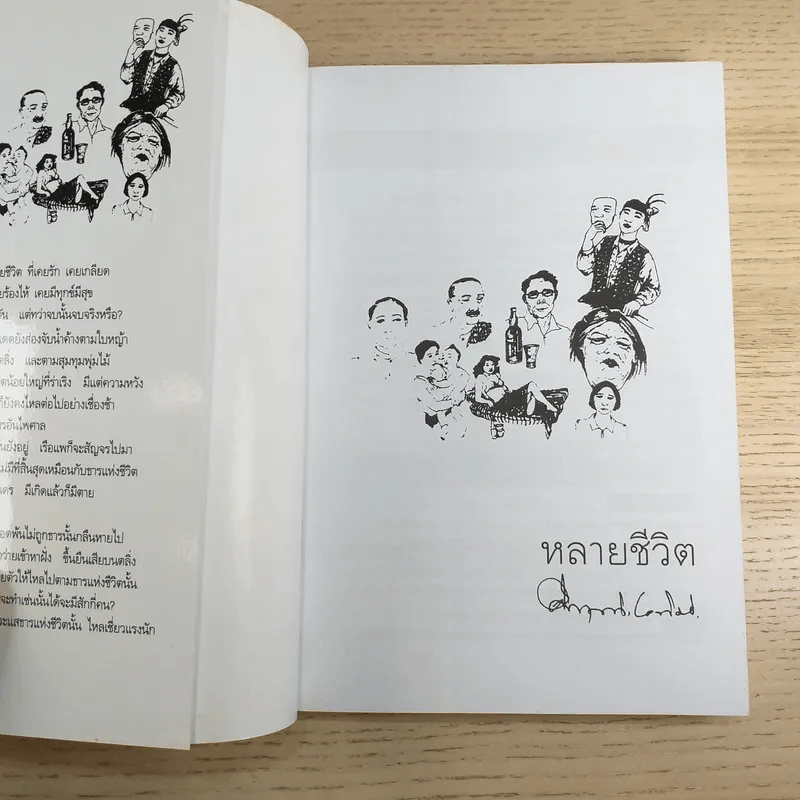 ชีวิต ที่เคยรัก เคยเกลียด
ร้องไห้ เคยมีทุกข์มีสุข
แต่ทว่าจบนั้นจบจริงหรือ?
แดดยังส่องจับน้ำค้างตามใบหญ้า
ตลิ่ง และตามสุมทุมพุ่มไม้
น้อยใหญ่ที่ร่าเริง มีแต่ความหวัง
ก็ยังคงไหลต่อไปอย่างเชื่องช้า
อันไพศาล
ยังอยู่ เรือแพก็จะสัญจรไปมา
ไม่มีที่สิ้นสุดเหมือนกับธารแห่งชีวิต
มีเกิดแล้วก็มีตาย
พ้นไม่ถูกธารนั้นกลืนหายไป
ว่ายเข้าหาฝั่ง ขึ้นยืนเสียบนตลิ่ง
ตัวให้ไหลไปตามธารแห่งชีวิตนั้น
จะทำเช่นนั้นได้จะมีสักกี่คน?
กระแสธารแห่งชีวิตนั้น ไหลเชี่ยวแรงนัก
หลายชีวิต